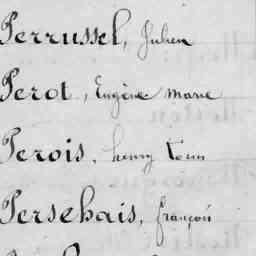 Perrussel, Julien
Perot, Eugène Marie
Perois, henry
Persehais, françois